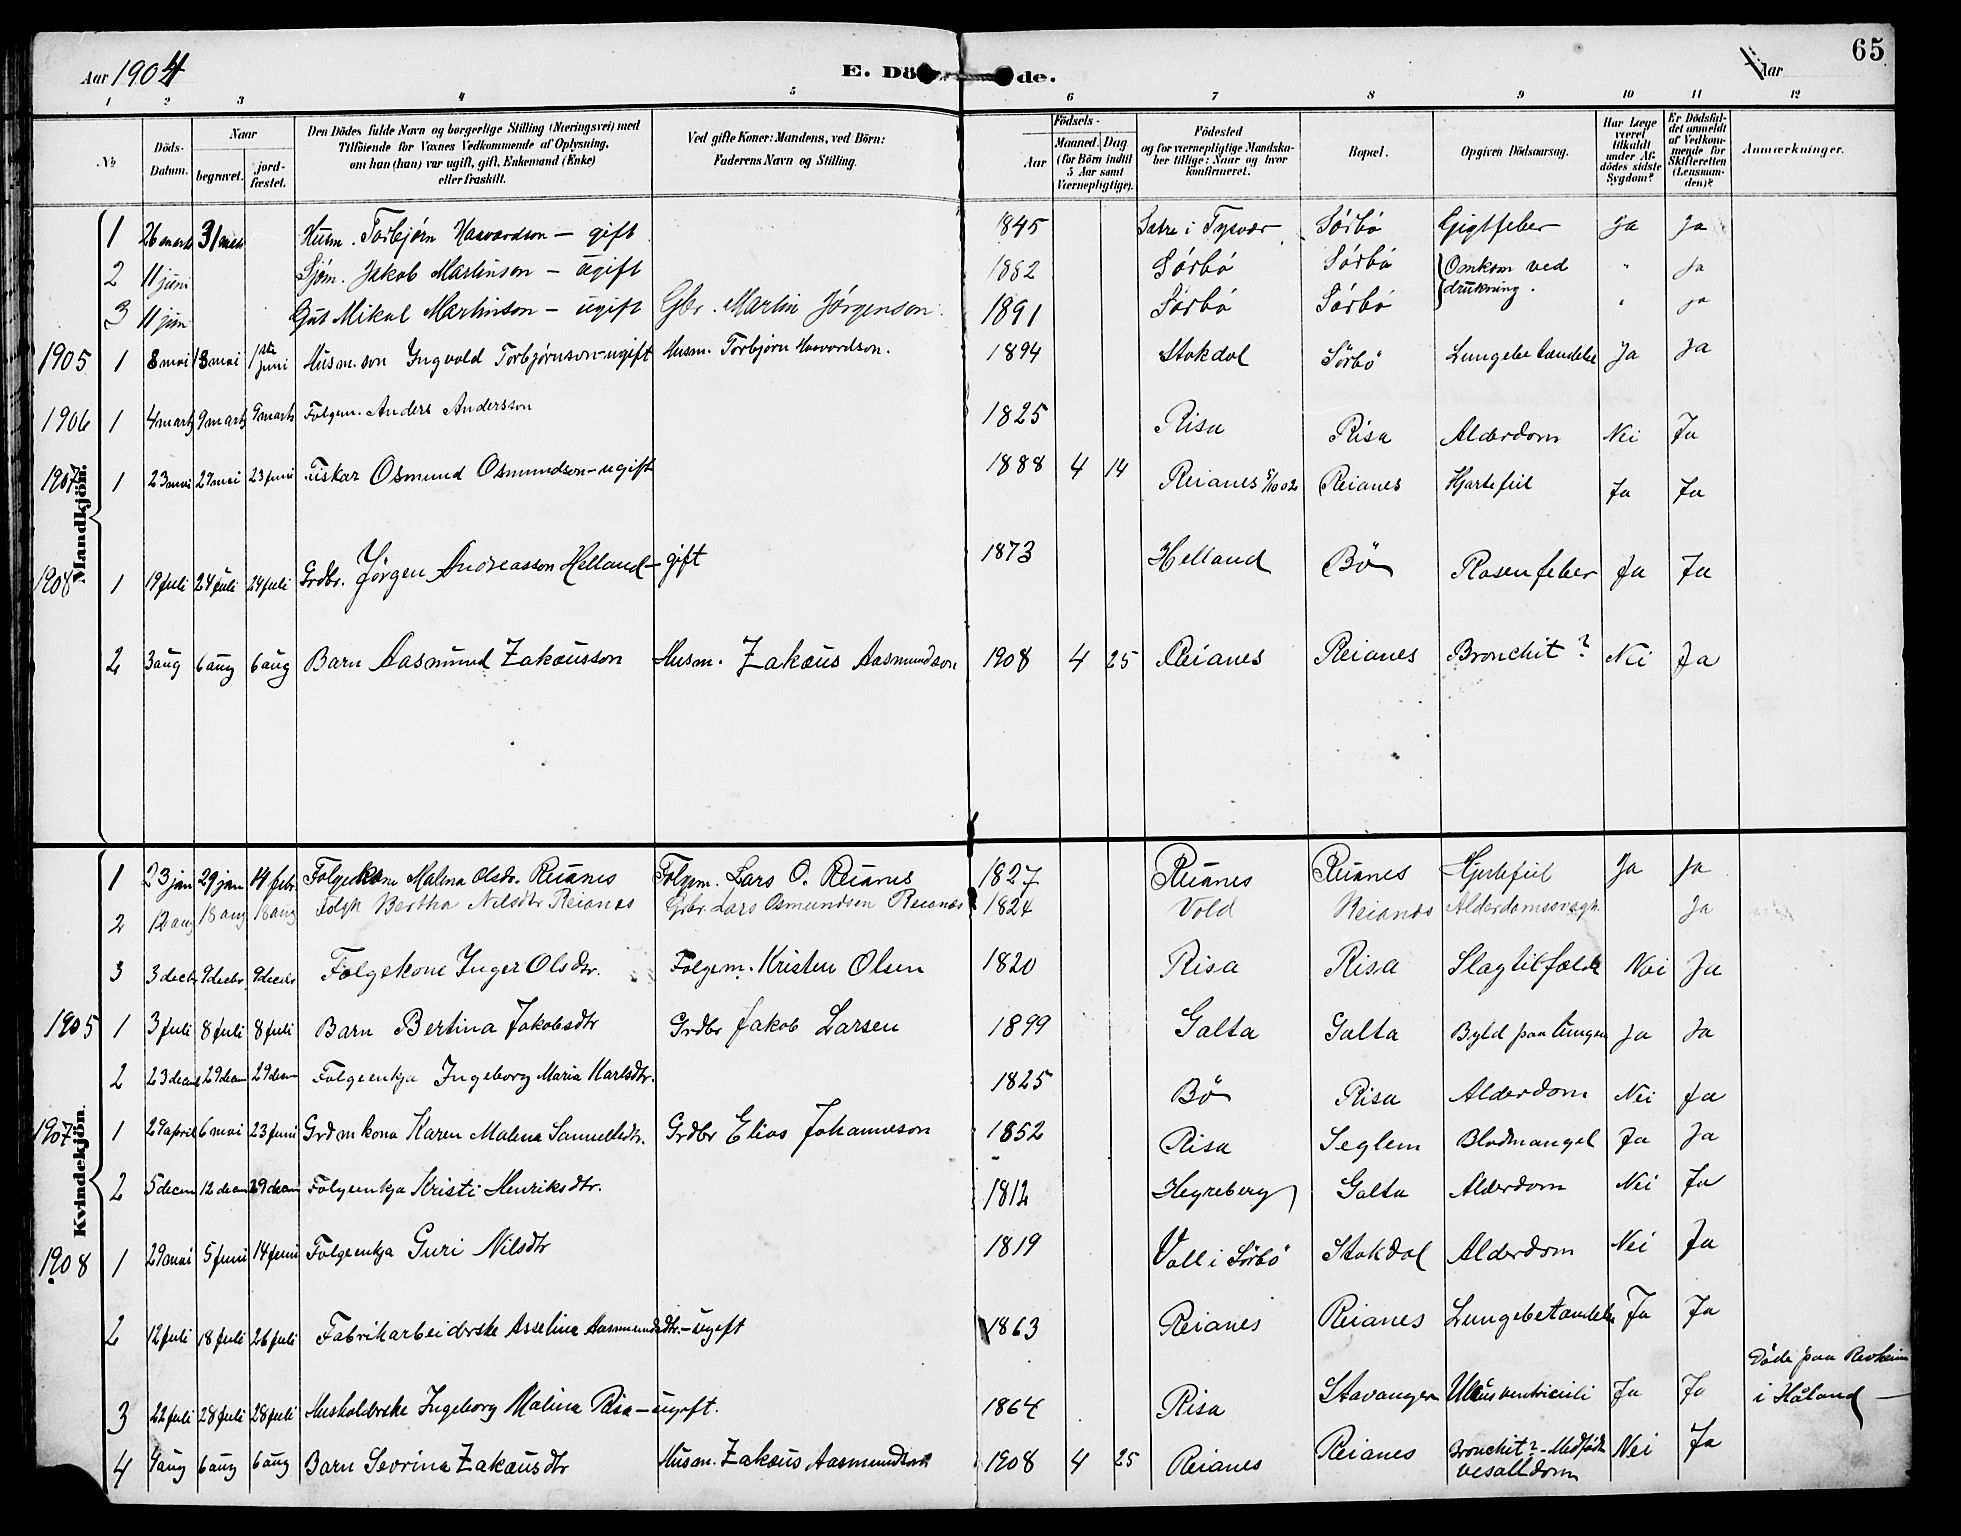 Aar 1904
E. Dö de.
Aar
65
1 2 3 4 5 6 7 8 9 10 11 12
№
Döds-Datum.
Naar
begravet.
jord-fæstet.
Den Dödes fulde Navn og borgerlige Stilling (Næringsvei) med
Tilföiende for Voxnes Vedkommende af Oplysning,
om han (hun) var ugift, gift, Enkemand (Enke)
eller fraskilt.
Ved gifte Koner: Mandens, ved Börn:
Faderens Navn og Stilling.
Födsels-
Aar
Maaned. Dag
(for Börn indtil
5 Aar samt
Værnepligtige).
Födested
og for værnepligtige Mandska-
ber tillige: Naar og hvor
konfirmeret.
Bopæl.
Opgiven Dödsaarsag.
Har Læge
været
tilkaldt
under Af-
dödes sidste
Sygdom?
Er Dödsfal-
det anmeldt
af Vedkom-
mende for
Skifteretten
(Lensman-
den)?
Anmærkninger.
Mandkjön.
1 26 marts 31 mars Husm. Torbjørn Havardson – gift 1845 Sætre i Tysvær Sörbö Gigtfeber Ja Ja
2 11 juni Sjøm. Jakob Martinson – ugift 1882 Sörbö Sörbö Omkom ved drukning. " Ja
3 11 juni Gut Mikal Martinson – ugift Gbr. Martin Jørgenson. 1891 Sörbö Sörbö " ja
1905 1 8 mai 13 mai 1ste juni Husm. son Ingvald Torbjørnson – ugift Husm. Torbjørn Havardson. 1894 Stokdal Sörbö Lungebetændelse Ja Ja
1906 1 4 marts 9 marts 9 marts Folgem. Anders Andersson 1825 Risa Risa Alderdom Nei Ja
1907 1 23 mai 29 mai 23 juni Fiskar Osmund Osmundson – ugift 1888 4 14 Reianes 5/10 02 Reianes Hjartefeil Ja Ja
1908 1 19 juli 24 juli 24 juli Grdbr. Jörgen Andreasson Helland – gift 1873 Helland Bö Rosenfeber Ja Ja
2 3 aug 6 aug 6 aug Barn Aasmund Zakæusson Husm. Zakæus Aasmundson 1908 4 25 Reianes Reianes Bronchit? Nei Ja
Kvindekjön.
1 23 jan 29 jan 14 febr Folgekone Malena Olsdr. Reianes Folgem. Lars O. Reianes 1827 Reianes Reianes Hjertefeil Ja Ja
2 12 aug 18 aug 18 aug Folgk Bertha Nilsdtr Reianes Gbr. Lars Osmundsen Reianes 1824 Vold Reianes Alderdomssvagh. Ja
3 3 decbr 9 decbr. 9 decbr Folgekone Inger Olsdtr. Folgem. Kristen Olsen 1820 Risa Risa Slagtilfælde Nei Ja
1905 1 3 juli 8 juli 8 juli Barn Bertina Jakobsdtr Grdbr Jakob Larsen 1899 Galta Galta Byld paa lungen Ja Ja
2 23 decem 29 decem 29 decem Folgeenkja Ingeborg Maria Karlsdtr. 1825 Bö Risa Alderdom Nei Ja
1907 1 29 april 6 mai 23 juni Grdmkona Karen Malena Samuelsdtr. Grdbr Elias Johanneson 1852 Risa Seglem Blodmangel Ja Ja
2 5 decem 12 decem 29 decem Folgeenkja Kristi Henriksdtr. 1812 Hegreberg Galta Alderdom Nei Ja
1908 1 29 mai 5 juni 14 juni Folgeenkja Guri Nilsdtr 1819 Voll i Sörbö Stokdal Alderdom Nei Ja
2 12 juli 18 juli 26 juli Fabrikarbeiderske Asselina Aasmundsdtr. – ugift 1863 Reianes Reianes Lungebetændelse Ja Ja
3 22 juli 28 juli 28 juli Husholderske Ingeborg Malina Risa – ugift. 1864 Risa Stavanger Ulcus ventriculi Ja Ja Döde paa Revheim i Håland
4 4 aug 6 aug 6 aug Barn Sevrina Zakæusdtr Husm. Zakæus Aasmundson 1908 4 25 Reianes Reianes Bronchit? – Medfödt vesalldom Nei Ja